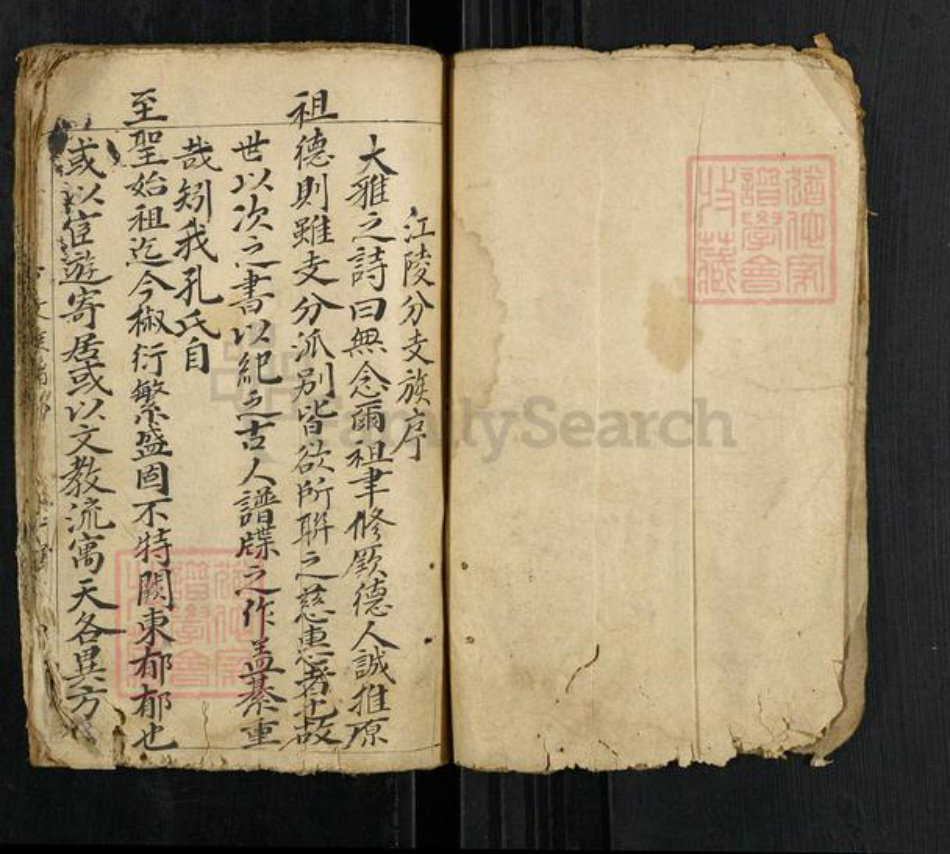 江陵分支族序
大雅之詩曰無念爾祖聿修厥德人誠推原
祖德則雖支分派别皆欲所聯之慈惠者也故
世以次之書以紀之古人譜牒之作盖綦重
哉矧我孔氏自
至聖始祖迄今椒衍繁盛固不特闕東郁郁也
或以宦遊寄居或以文教流寓天各異方
猶他家譜學會收藏
FamilySearch